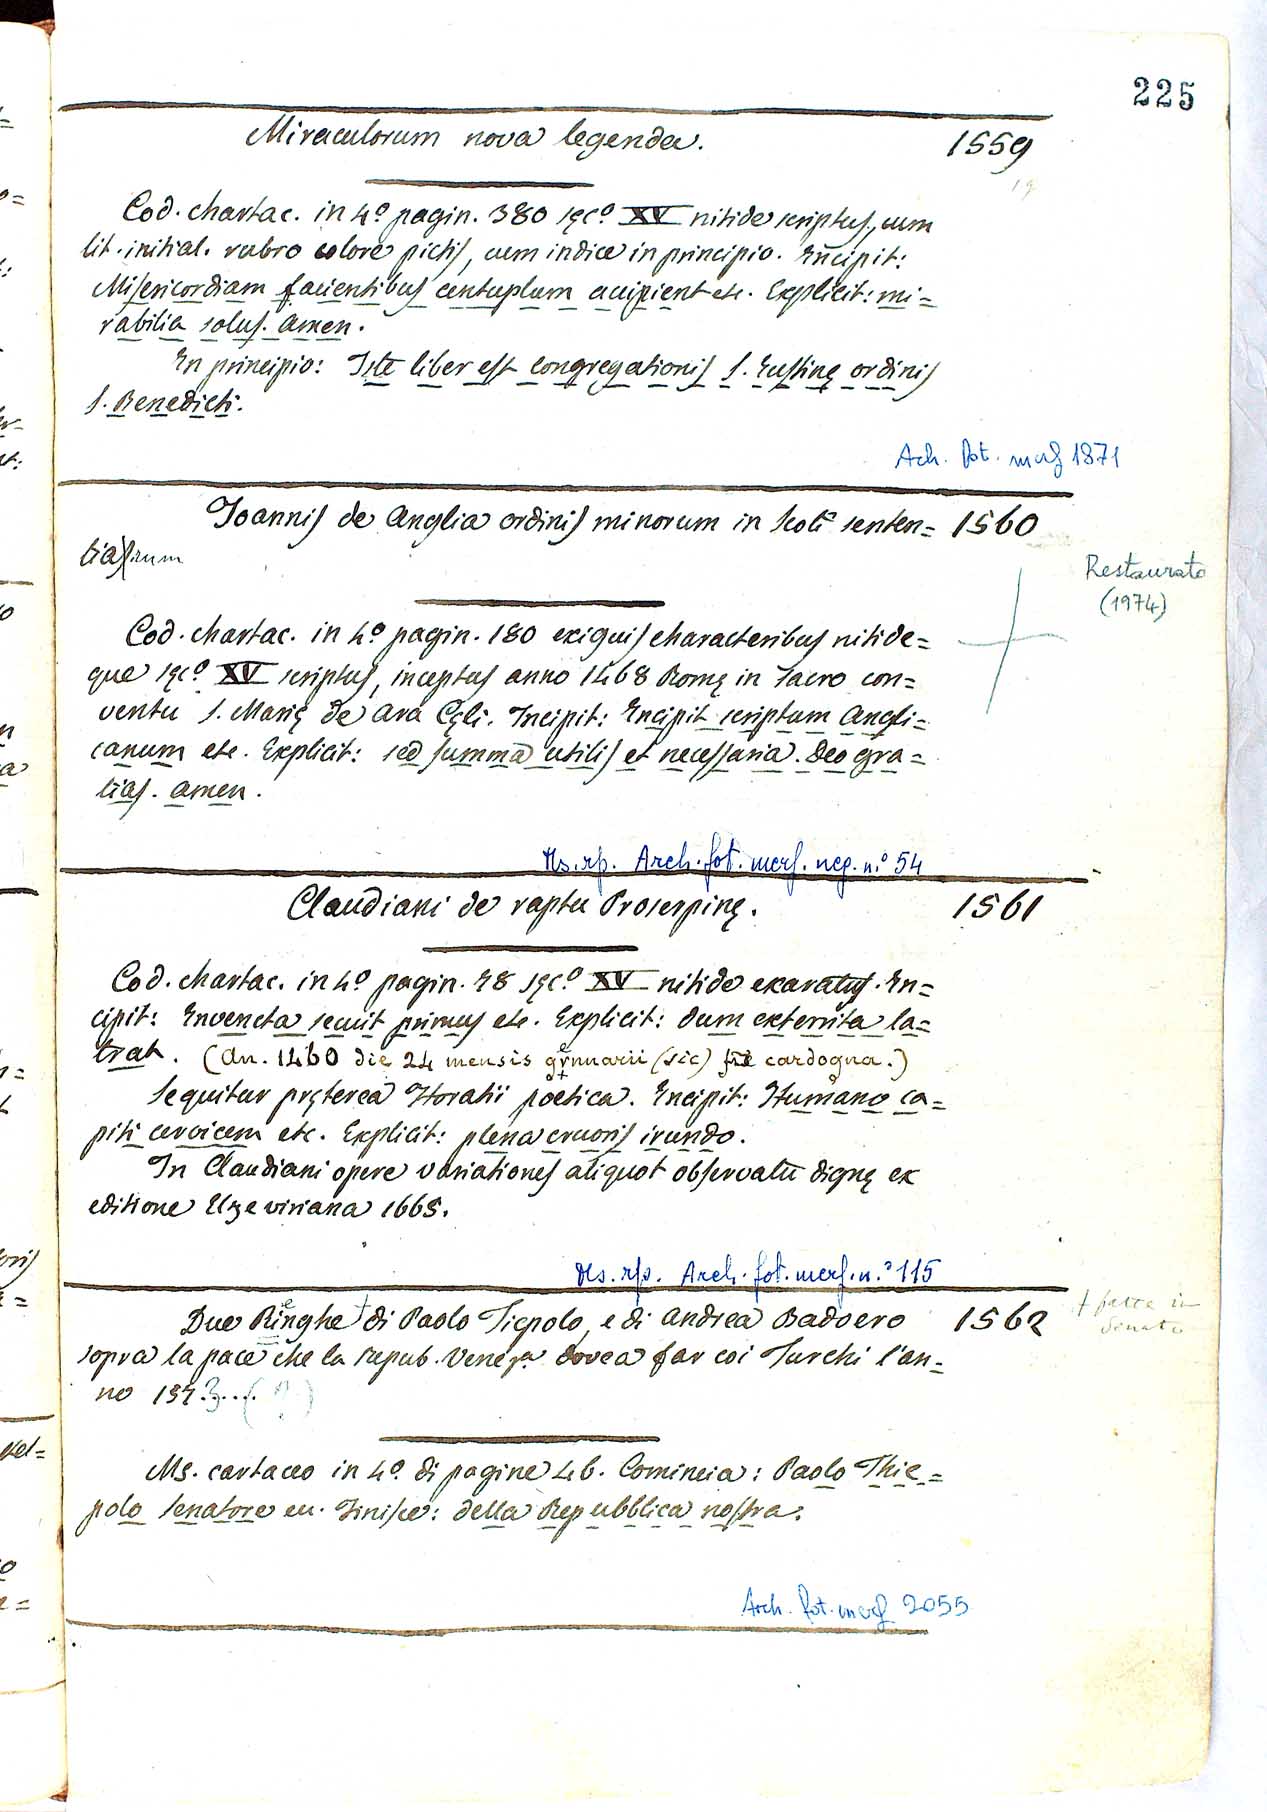 225
Miraculorum nova legenda. 1559
Cod. chartac. in 4º pagin. 380 sęcº XV nitide scriptus, cum
lit. initial. rubro colore pictis, cum indice in principio. Incipit:
Misericordiam facientibus centuplum accipient etc. Explicit: mi=
rabilia solus. Amen.
In principio: Iste liber est congregationis S. Iustinę ordinis
S. Benedicti.
Ach. fot. mcrf 1871
Ioannis de Anglia ordinis minorum in Scoti senten= 1560
tias
Restaurato
(1974)
Cod. chartac. in 4º pagin. 180 exiguis characteribus nitide=
que sęcº XV scriptus, inceptus anno 1468 Romę in sacro con=
ventu S. Marię de Ara Cęli. Incipit: Incipit scriptum Angli=
canum etc. Explicit: sed summa utilis et necessaria. Deo gra=
tias. Amen.
Ms. rp. Arch. fot. mcrf. neg. n.º 54
Claudiani de raptu Proserpinę. 1561
Cod. chartac. in 4º pagin. 78 sęcº XV nitide exaratus. In=
cipit: Inventa secuit primus etc. Explicit: dum exterrita la=
trat. (An. 1460 die 24 mensis gennuarii (sic) cardogna.)
Sequitur pręterea Horatii poetica. Incipit: Humano ca=
piti cervicem etc. Explicit: plena cruoris irundo.
In Claudiani opere variationes aliquot observatu dignę ex
editione Elzeviriana 1665.
Ms. rp. Arch. fot. mcrf. n.º 115
Due Ringhe + di Paolo Tiepolo, e di Andrea Badoero 1562
+ fatte in
Senato
sopra la pace che la Repub. Veneza dovea far coi Turchi l'an=
no 157.3... (?)
Ms. cartaceo in 4º di pagine 46. Comincia: Paolo Thie=
polo Senatore ec. Finisce: della Repubblica nostra.
Arch. fot. mcrf 2055